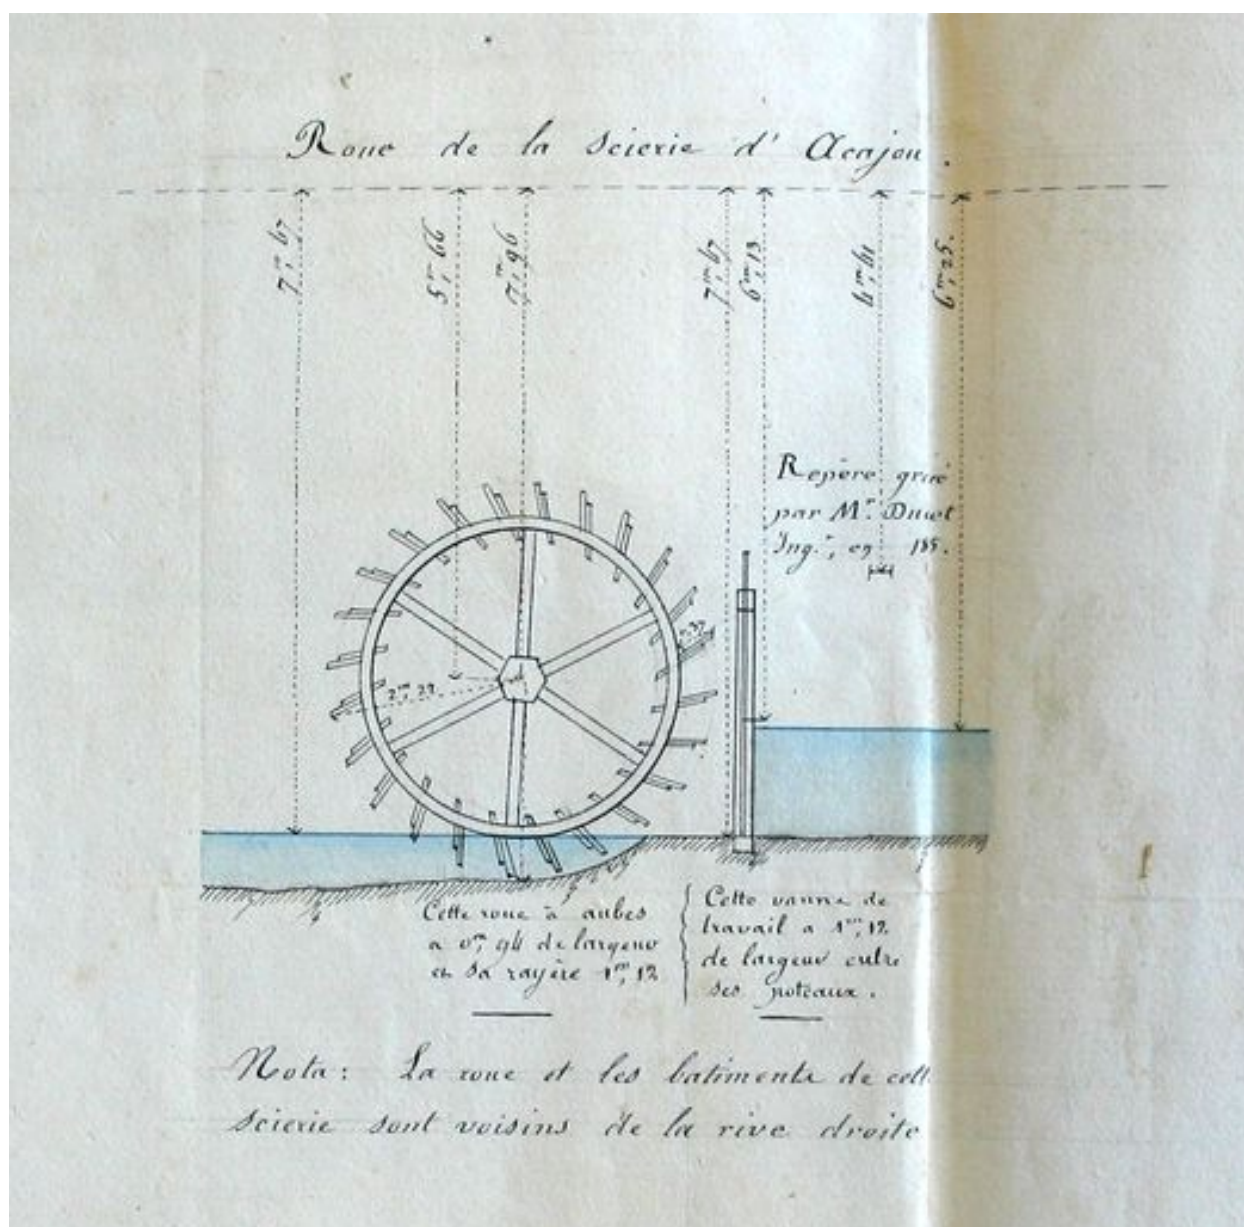 Roue de la scierie d'Acajou.
7m,67
5m,66
7m,96
7m,67
6m,13
4m,61
6m,25.
Repère gravé
par Mr.
Ingr., en 185.
0m,37
2m,32
Cette roue à aubes
a 0m,94 de largeur
et sa rayère 1m,12
Cette vanne de
travail a 1m,12
de largeur entre
ses poteaux.
Nota: La roue et les batiments de cette
scierie sont voisins de la rive droite